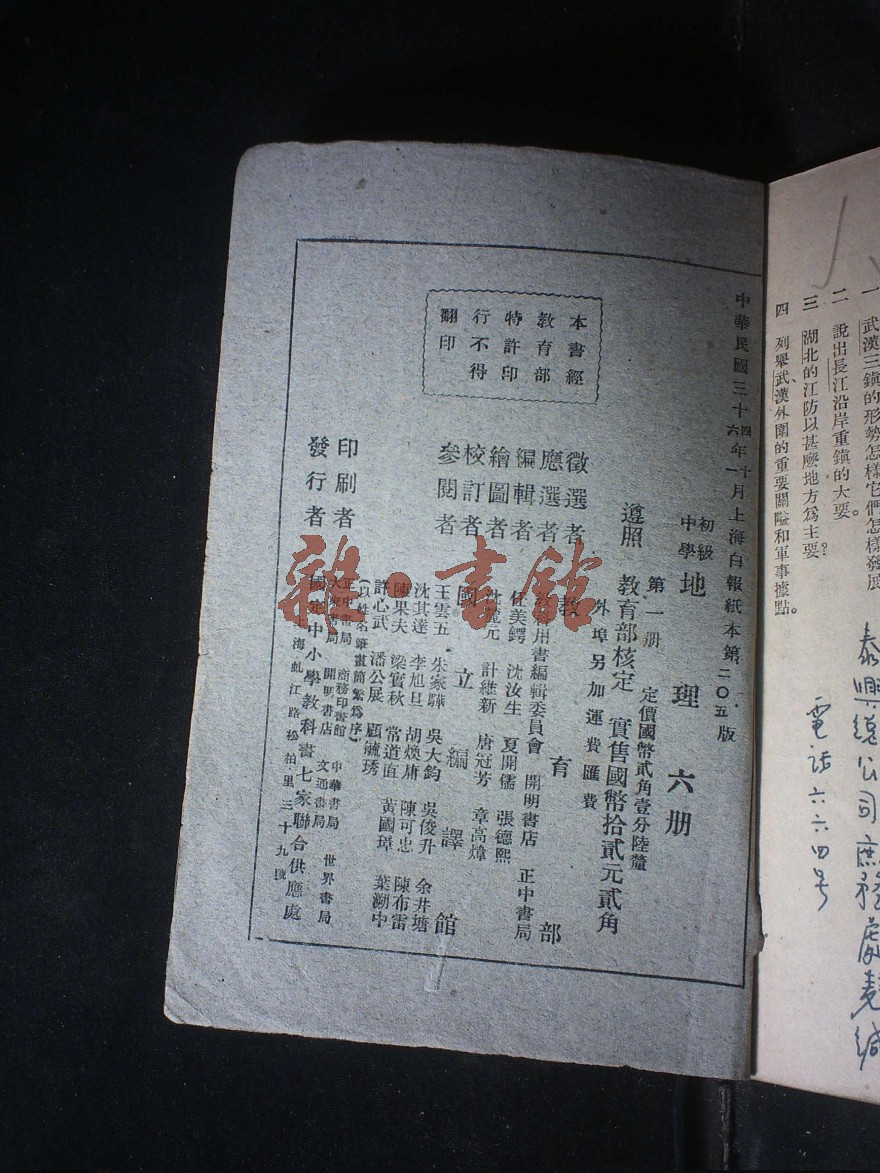 一 武漢三鎮的形勢怎樣它們怎樣發展
二 說出長江沿岸重鎮的大要。
三 湖北的江防以甚麼地方爲主要?
四 列舉武漢外圍的重要關隘和軍事據點。
電話六六四号
中華民國三十四年十月上海白報紙本第
六年一月
二〇五版
初級中學 地理 六册
第一册 定價國幣貳角壹分陸釐
遵照教育部核定 實售國幣拾貳元貳角
外埠另加運費匯費
本書經
教育部
特許印
行不得
翻印
徵選者 教育部
應選者 用書編輯委員會 開明書店 正中書局
編輯者 任美鍔 沈汝生 夏開儒 張德熙
繪圖者 計維新 唐冠芳 章高煒
校訂者 國立編譯館
參閱者 王雲五 朱家驊 吳大鈞 吳俊升 余井塘
沈其達 李旭旦 胡煥庸 陳可忠 陳布雷
陳果夫 梁實秋 常道直 黃國璋 葉溯中
許心武 潘公展 顧毓琇
(以姓名筆畫簡繁爲序)
印刷者 正中書局 商務印書館 中華書局 世界書局
大東書局 開明書店 文通書局
發行者 國定中小學教科書七家聯合供應處
上海虬江路松柏里三十九號
雜·書館